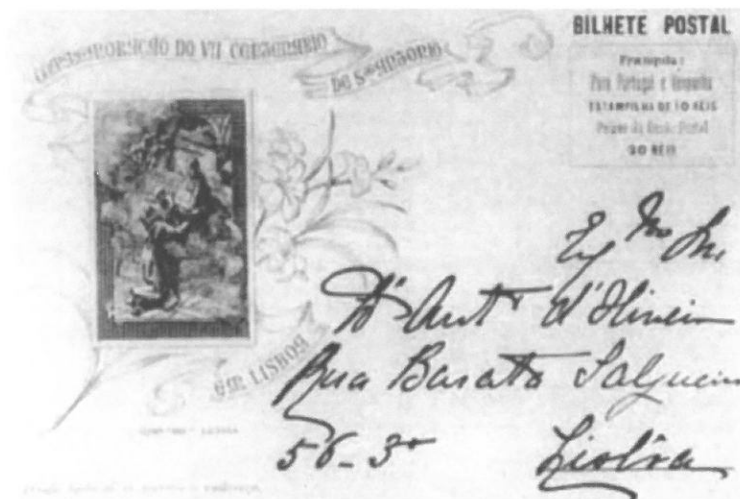 COMMEMORAÇÃO DO VII CENTENARIO
DE Sto ANTONIO
EM LISBOA
BILHETE POSTAL
Franquia:
Para Portugal e Hespanha
ESTAMPILHA DE 10 REIS
Paizes da União Postal
30 REIS
Exmo Snr
Dr Antº d'Oliveira
Rua Barata Salgueiro
56-3º Lisboa